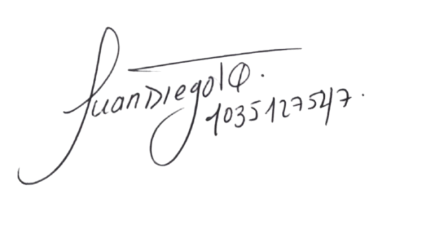 Juan Diego l Q.
1035127547.